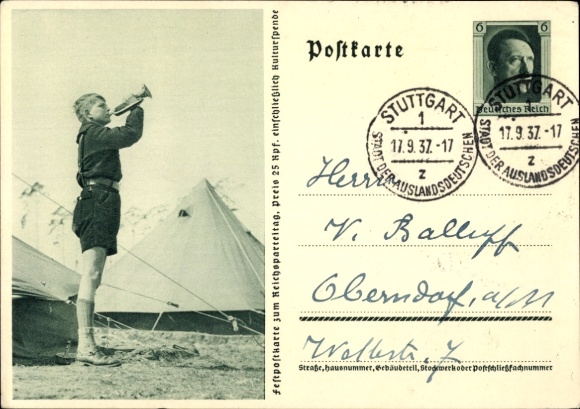 Festpostkarte zum Reichsparteitag. Preis 25 Rpf. einschließlich Kulturspende
Postkarte
6 6
Deutsches Reich
STUTTGART
1
17.9.37.-17
z
STADT DER AUSLANDSDEUTSCHEN
STUTTGART
1
17.9.37.-17
z
STADT DER AUSLANDSDEUTSCHEN
Herrn
V. Balluff
Oberndorf a/N
Straße, Hausnummer, Gebäudeteil, Stockwerk oder Postschließfachnummer